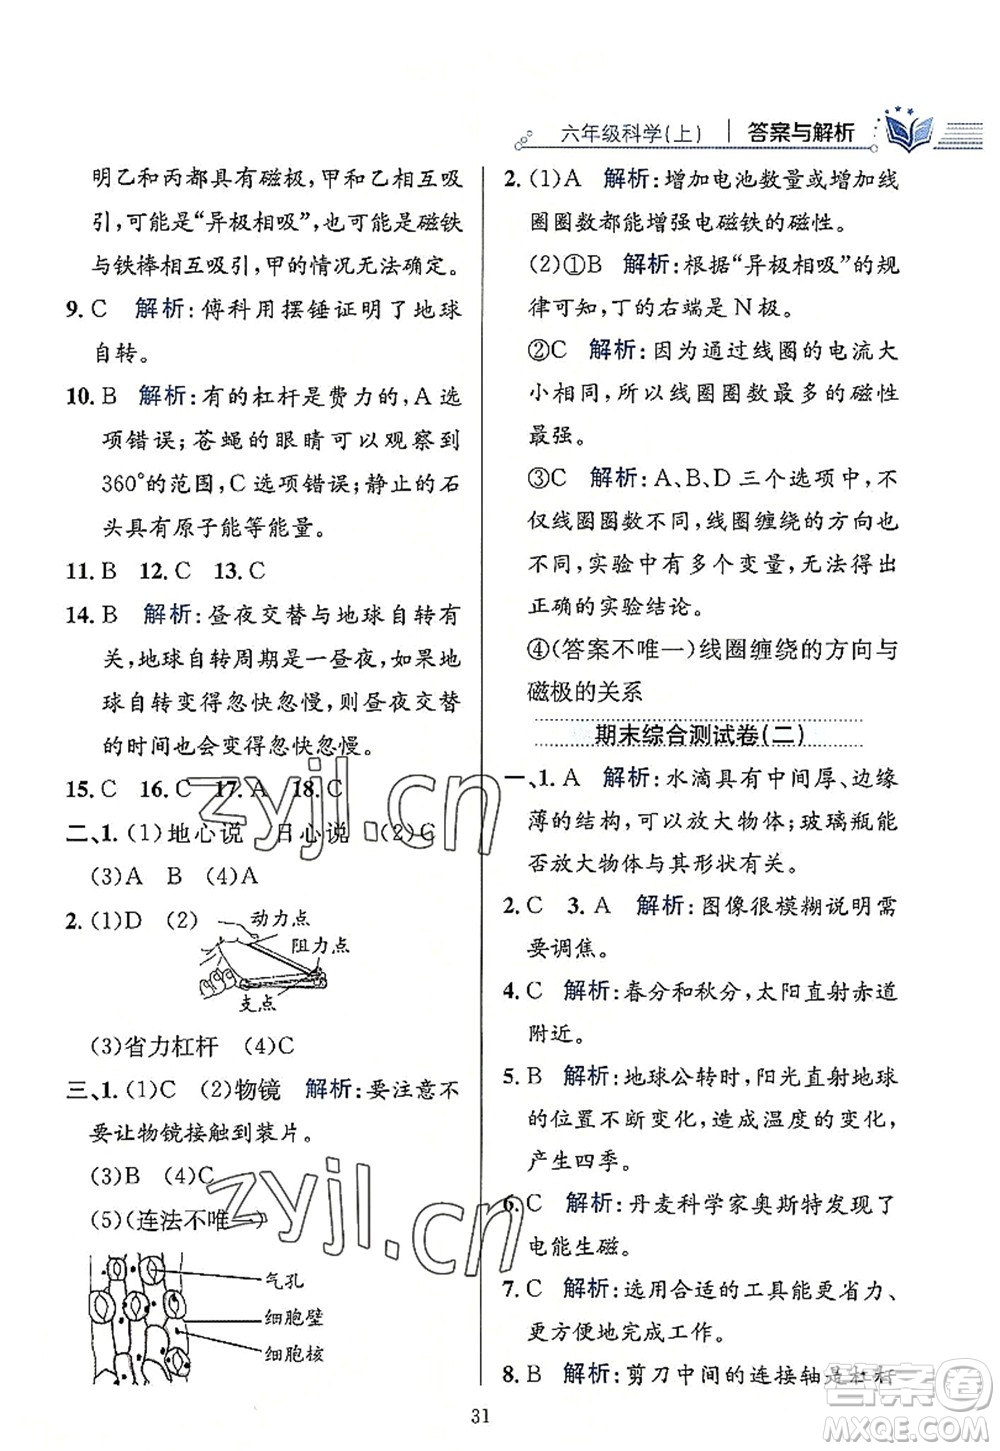 六年级科学(上) 答案与解析
明乙和丙都具有磁极,甲和乙相互吸
引,可能是“异极相吸”,也可能是磁铁
与铁棒相互吸引,甲的情况无法确定。
9. C 解析:傅科用摆锤证明了地球
自转。
10. B 解析:有的杠杆是费力的,A选
项错误;苍蝇的眼睛可以观察到
360°的范围,C选项错误;静止的石
头具有原子能等能量。
11. B 12. C 13. C
14. B 解析:昼夜交替与地球自转有
关,地球自转周期是一昼夜,如果地
球自转变得忽快忽慢,则昼夜交替
的时间也会变得忽快忽慢。
15. C 16. C 17. A 18. C
二、1. (1)地心说 日心说 (2)C
(3)A B (4)A
2. (1)D (2)
动力点
阻力点
支点
(3)省力杠杆 (4)C
三、1. (1)C (2)物镜 解析:要注意不
要让物镜接触到装片。
(3)B (4)C
(5)(连法不唯一)
气孔
细胞壁
细胞核
2. (1)A 解析:增加电池数量或增加线
圈圈数都能增强电磁铁的磁性。
(2)①B 解析:根据“异极相吸”的规
律可知,丁的右端是N极。
②C 解析:因为通过线圈的电流大
小相同,所以线圈圈数最多的磁性
最强。
③C 解析:A、B、D三个选项中,不
仅线圈圈数不同,线圈缠绕的方向也
不同,实验中有多个变量,无法得出
正确的实验结论。
④(答案不唯一)线圈缠绕的方向与
磁极的关系
期末综合测试卷(二)
一、1. A 解析:水滴具有中间厚、边缘
薄的结构,可以放大物体;玻璃瓶能
否放大物体与其形状有关。
2. C 3. A 解析:图像很模糊说明需
要调焦。
4. C 解析:春分和秋分,太阳直射赤道
附近。
5. B 解析:地球公转时,阳光直射地球
的位置不断变化,造成温度的变化,
产生四季。
6. C 解析:丹麦科学家奥斯特发现了
电能生磁。
7. C 解析:选用合适的工具能更省力、
更方便地完成工作。
8. B 解析:剪刀中间的连接轴是杠杆
31
zyjl.cn
zyjl.cn
答案圈
MXQE.COM